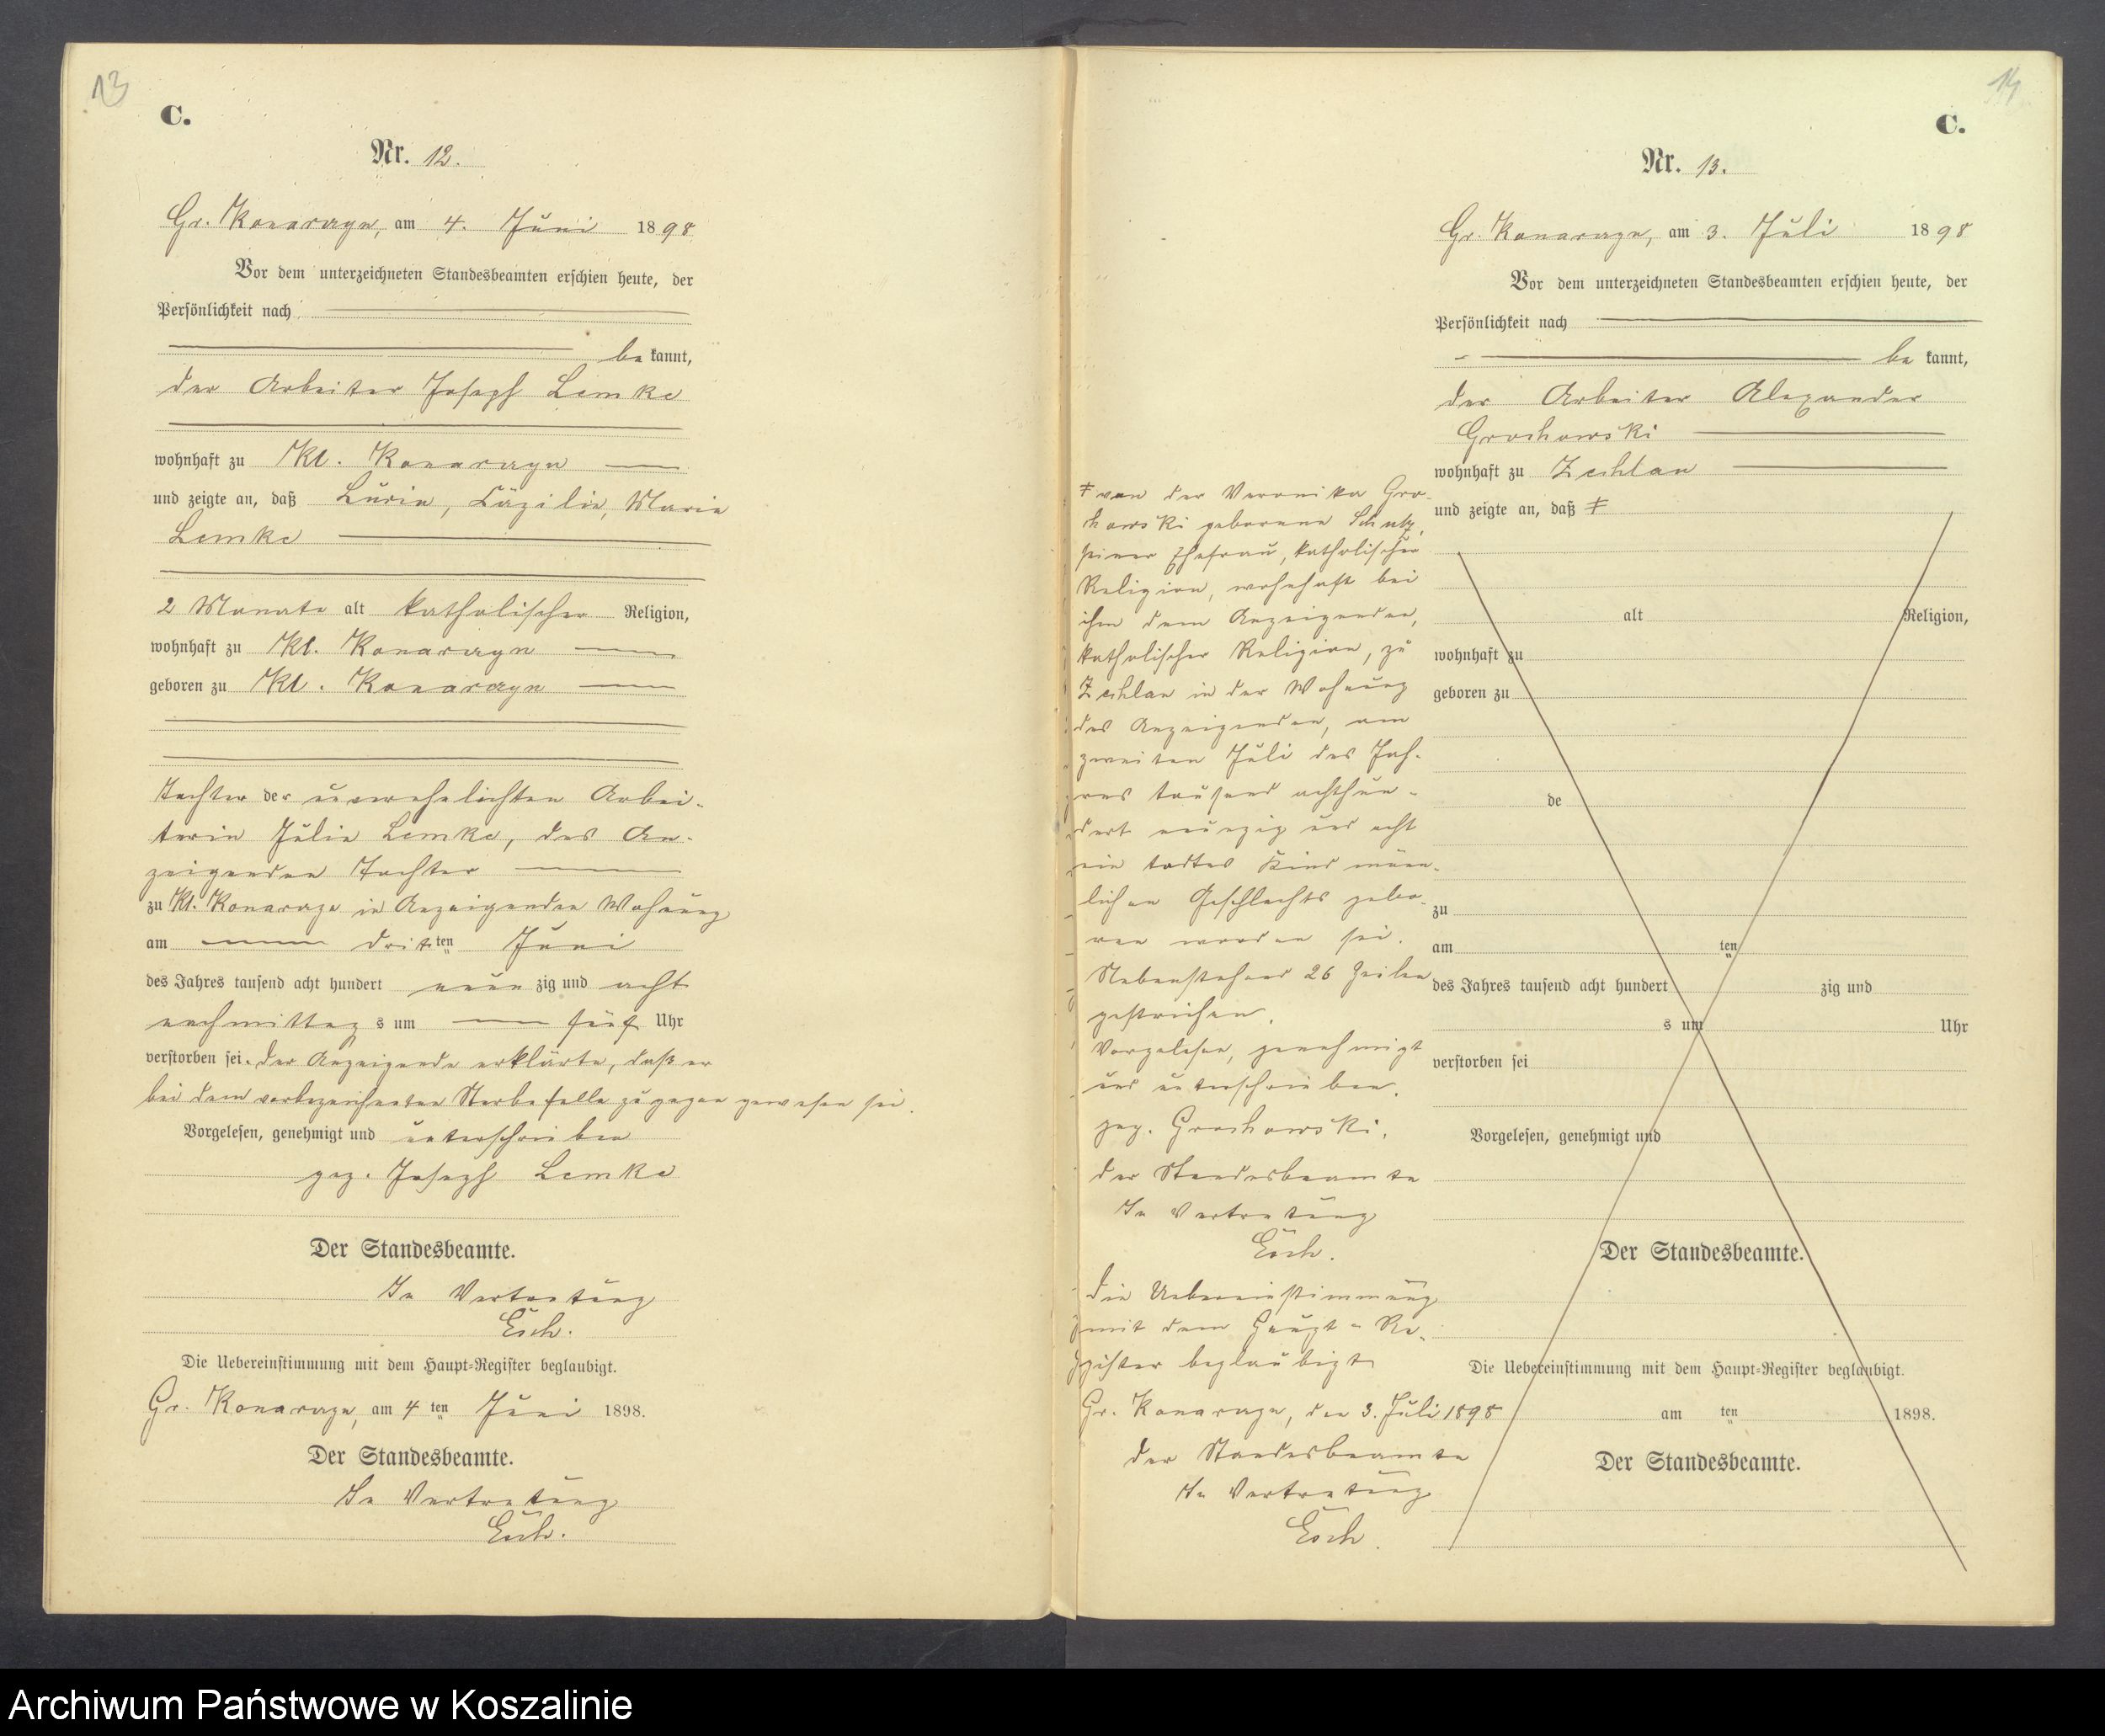 13
C.
Nr. 12.
Gr. Konarzyn, am 4. Juni 1898
Vor dem unterzeichneten Standesbeamten erschien heute, der
Persönlichkeit nach
be kannt,
der Arbeiter Joseph Lemke
wohnhaft zu Kl. Konarzyn
und zeigte an, daß Luzia, Cäzilie, Marie
Lemke
2 Monate alt katholischer Religion,
wohnhaft zu Kl. Konarzyn
geboren zu Kl. Konarzyn
Tochter der unverehelichten Arbei-
terin Julie Lemke, des An-
zeigenden Tochter
zu Kl. Konarzyn in Anzeigenden Wohnung
am dritten Juni
des Jahres tausend acht hundert neun zig und acht
nachmittags um fünf Uhr
verstorben sei. Der Anzeigende erklärte, daß er
bei dem vorbezeichneten Sterbefalle zugegen gewesen sei.
Vorgelesen, genehmigt und unterschrieben
gez. Joseph Lemke
Der Standesbeamte.
In Vertretung
Esch.
Die Uebereinstimmung mit dem Haupt-Register beglaubigt.
Gr. Konarzyn, am 4ten Juni 1898.
Der Standesbeamte.
In Vertretung
Esch.
14
C.
Nr. 13.
Gr. Konarzyn, am 3. Juli 1898
Vor dem unterzeichneten Standesbeamten erschien heute, der
Persönlichkeit nach
be kannt,
der Arbeiter Alexander
Grochowski
wohnhaft zu Zechlau
und zeigte an, daß ǂ
alt Religion,
wohnhaft zu
geboren zu
de
zu
am ten
des Jahres tausend acht hundert zig und
s um Uhr
verstorben sei
Vorgelesen, genehmigt und
Der Standesbeamte.
Die Uebereinstimmung mit dem Haupt-Register beglaubigt.
am ten 1898.
Der Standesbeamte.
ǂ von der Veronika Gro-
chowski geborene Schutz,
seiner Ehefrau, katholischer
Religion, wohnhaft bei
ihm dem Anzeigenden,
katholischer Religion, zu
Zechlau in der Wohnung
des Anzeigenden, am
zweiten Juli des Jah-
res tausend achthun-
dert neunzig und acht
ein todtes Kind männ-
lichen Geschlechts gebo-
ren worden sei.
Nebenstehend 26 Zeilen
gestrichen.
Vorgelesen, genehmigt
und unterschrieben.
gez. Grochowski.
Der Standesbeamte
In Vertretung
Esch.
Die Uebereinstimmung
mit dem Haupt-Re-
gister beglaubigt
Gr. Konarzyn, den 3. Juli 1898
Der Standesbeamte
In Vertretung
Esch.
Archiwum Państwowe w Koszalinie